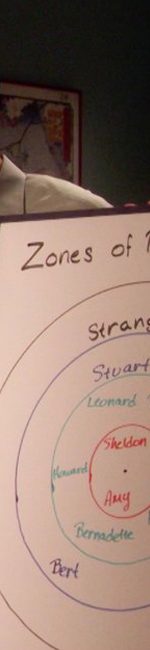 Zones of
Strang
Stuart
Leonard
Sheldon
Howard
Amy
Bernadette
Bert